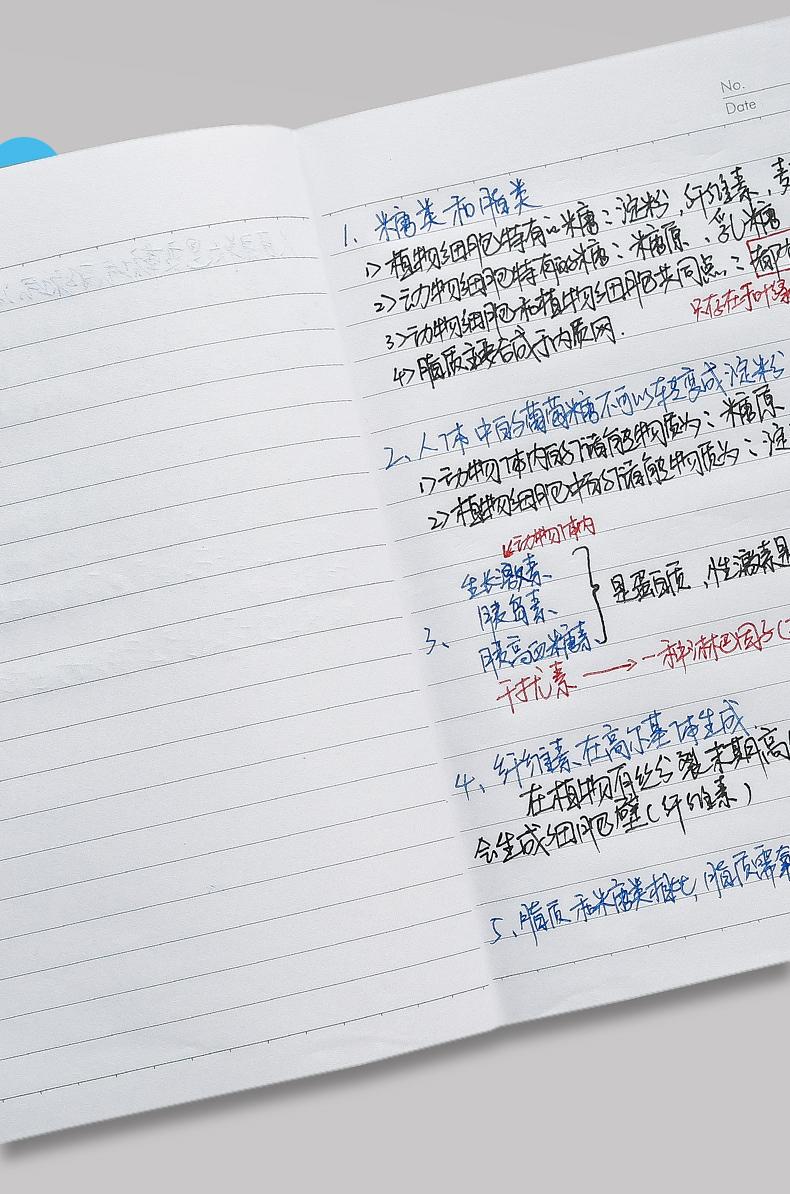 No.
Date
1、糖类和脂类
1>植物细胞特有的糖：淀粉，纤维素，麦
2>动物细胞特有的糖：糖原、乳糖
3>动物细胞和植物细胞共同点：都
只存在于叶绿
4>脂质主要合成于内质网.
2、人体中的葡萄糖不可以转变成淀粉
1>动物体内的储能物质为：糖原
2>植物细胞中的储能物质为：淀
动物体内
生长激素、
胰岛素、
3、
胰高血糖素、
是蛋白质，性激素是
干扰素→一种淋巴因子(
4、纤维素在高尔基体生成.
在植物有丝分裂末期高
会生成细胞壁(纤维素)
5、脂质和糖类相比，脂质需氧